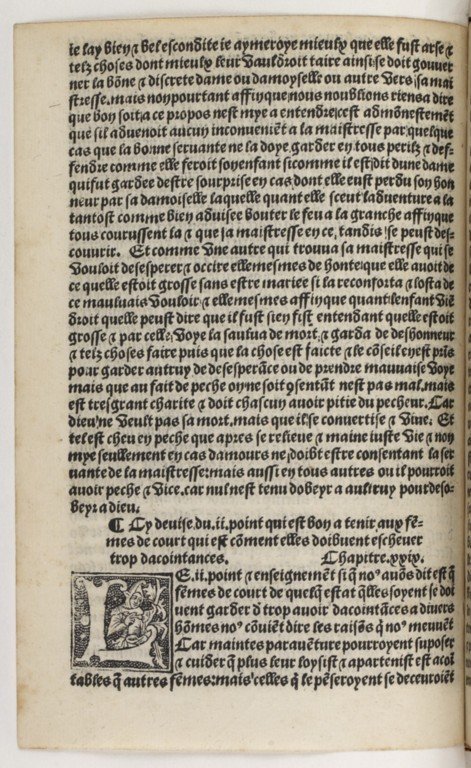 ie lay bien ⁊ bel escondite ie aymeroye mieulx que elle fust arse ⁊
telz choses dont mieulx leur vauldroit taire ainsi se doit gouver
ner la bōne ⁊ discrete dame ou damoyselle ou autre vers sa mai
stresse. mais non pourtant affin que nous noublions riens a dire
que bon soit: a ce propos nest mye a entendre: cest admōnestemēt
que sil advenoit aucun inconueniēt a la maistresse par quelque
cas que la bonne seruante ne la doye garder en tous perilz ⁊ def-
fendre comme elle feroit son enfant si comme il est dit dune dame
qui fut gardee destre sourprise en cas dont elle eust perdu son hon
neur par sa damoiselle laquelle quant elle sceut laduenture a la
tantost comme bien aduisee bouter le feu a la granche affin que
tous courussent la ⁊ que sa maistresse en ce tandis se peust des-
couurir. Et comme vne autre qui trouua sa maistresse qui se
vouloit desesperer ⁊ occire ellemesmes de honte: que elle auoit de
ce quelle estoit grosse sans estre mariee si la reconforta ⁊ losta de
ce mauluais vouloir: ⁊ elle mesmes affin que quant lenfant viē
droit quelle peust dire que il fust sien fist entendant quelle estoit
grosse ⁊ par celle voye la saulua de mort: ⁊ garda de deshonneur
⁊ telz choses faire puis que la chose est faicte ⁊ le cōseil cy nest prīs
pour garder autruy de desesperāce ou de prendre mauuaise voye
mais que au fait de peche on ne soit ꝯsentāt nest pas mal. mais
est tresgrant charite ⁊ doit chascun auoir pitie du pecheur. Car
dieu ne veult pas sa mort. mais que il se conuertise ⁊ viue. Et
tel est cheu en peche que apres se relieue ⁊ maine iuste vie ⁊ non
mye seullement en cas damours ne doibt estre consentant la ser
uante de la maistresse: mais aussi en tous autres ou il pourroit
auoir peche ⁊ vice. car nul nest tenu dobeyr a aultruy pour deso-
beyr a dieu.
¶ Cy deuise. du. ii. point qui est bon a tenir aux fē-
mes de court qui est cōment elles doibuent escheuer
trop dacointances. Chapitre. xxix.
LE. ii. point ⁊ enseignemēt si q̄ noꝰ auōs dit est q̄
fēmes de court de quelq̄ estat q̄lles soyent se doi
uent garder d trop auoir dacointāces a diuers
hōmes noꝰ cōuiēt dire les raisōs q̄ noꝰ meuuēt
Car maintes par auēture pourroyent suposer
⁊ cuider q̄ plus leur loysist ⁊ apartenist est acoī
tables q̄ autres fēmes: mais celles q̄ le pēseroyent se deceuroiēt